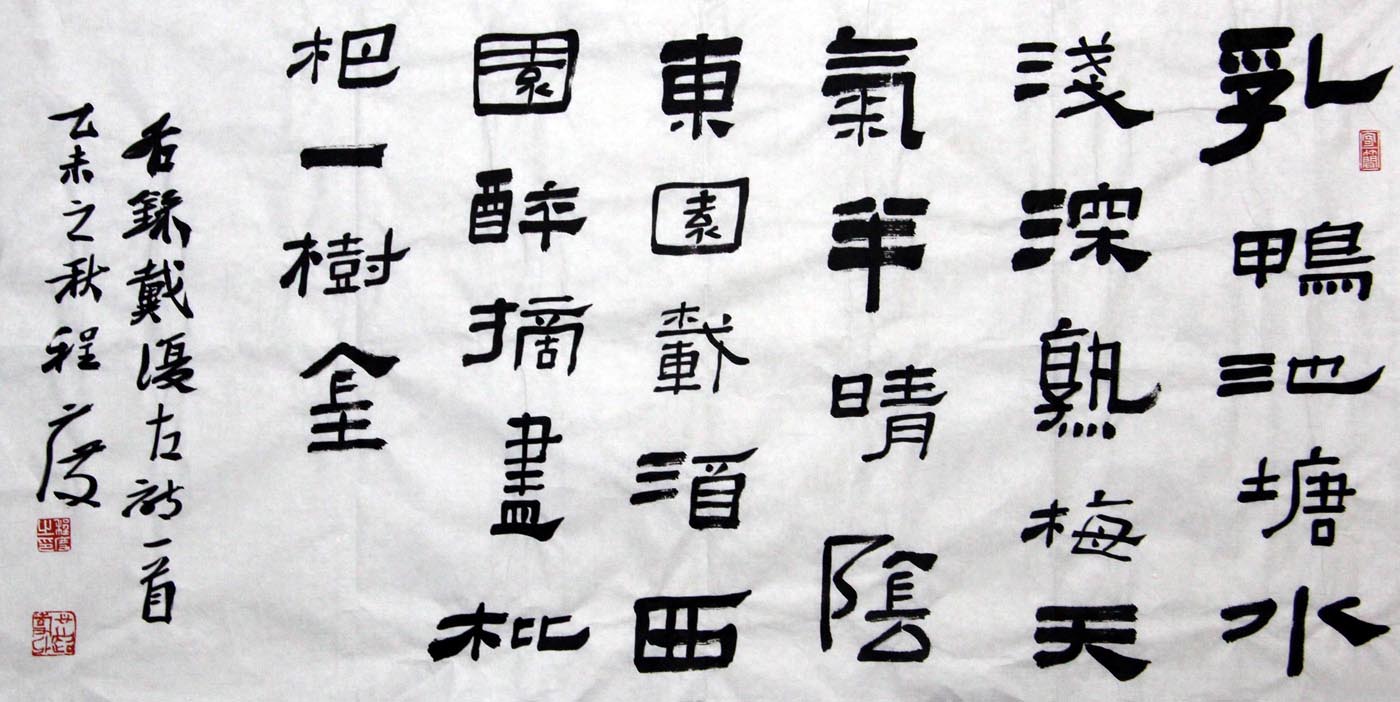 乳鴨池塘水
淺深熟梅天
氣半晴陰
東園載酒西
園醉摘盡枇
杷一樹金
右錄戴復古詩一首
乙未之秋程度
程度之印